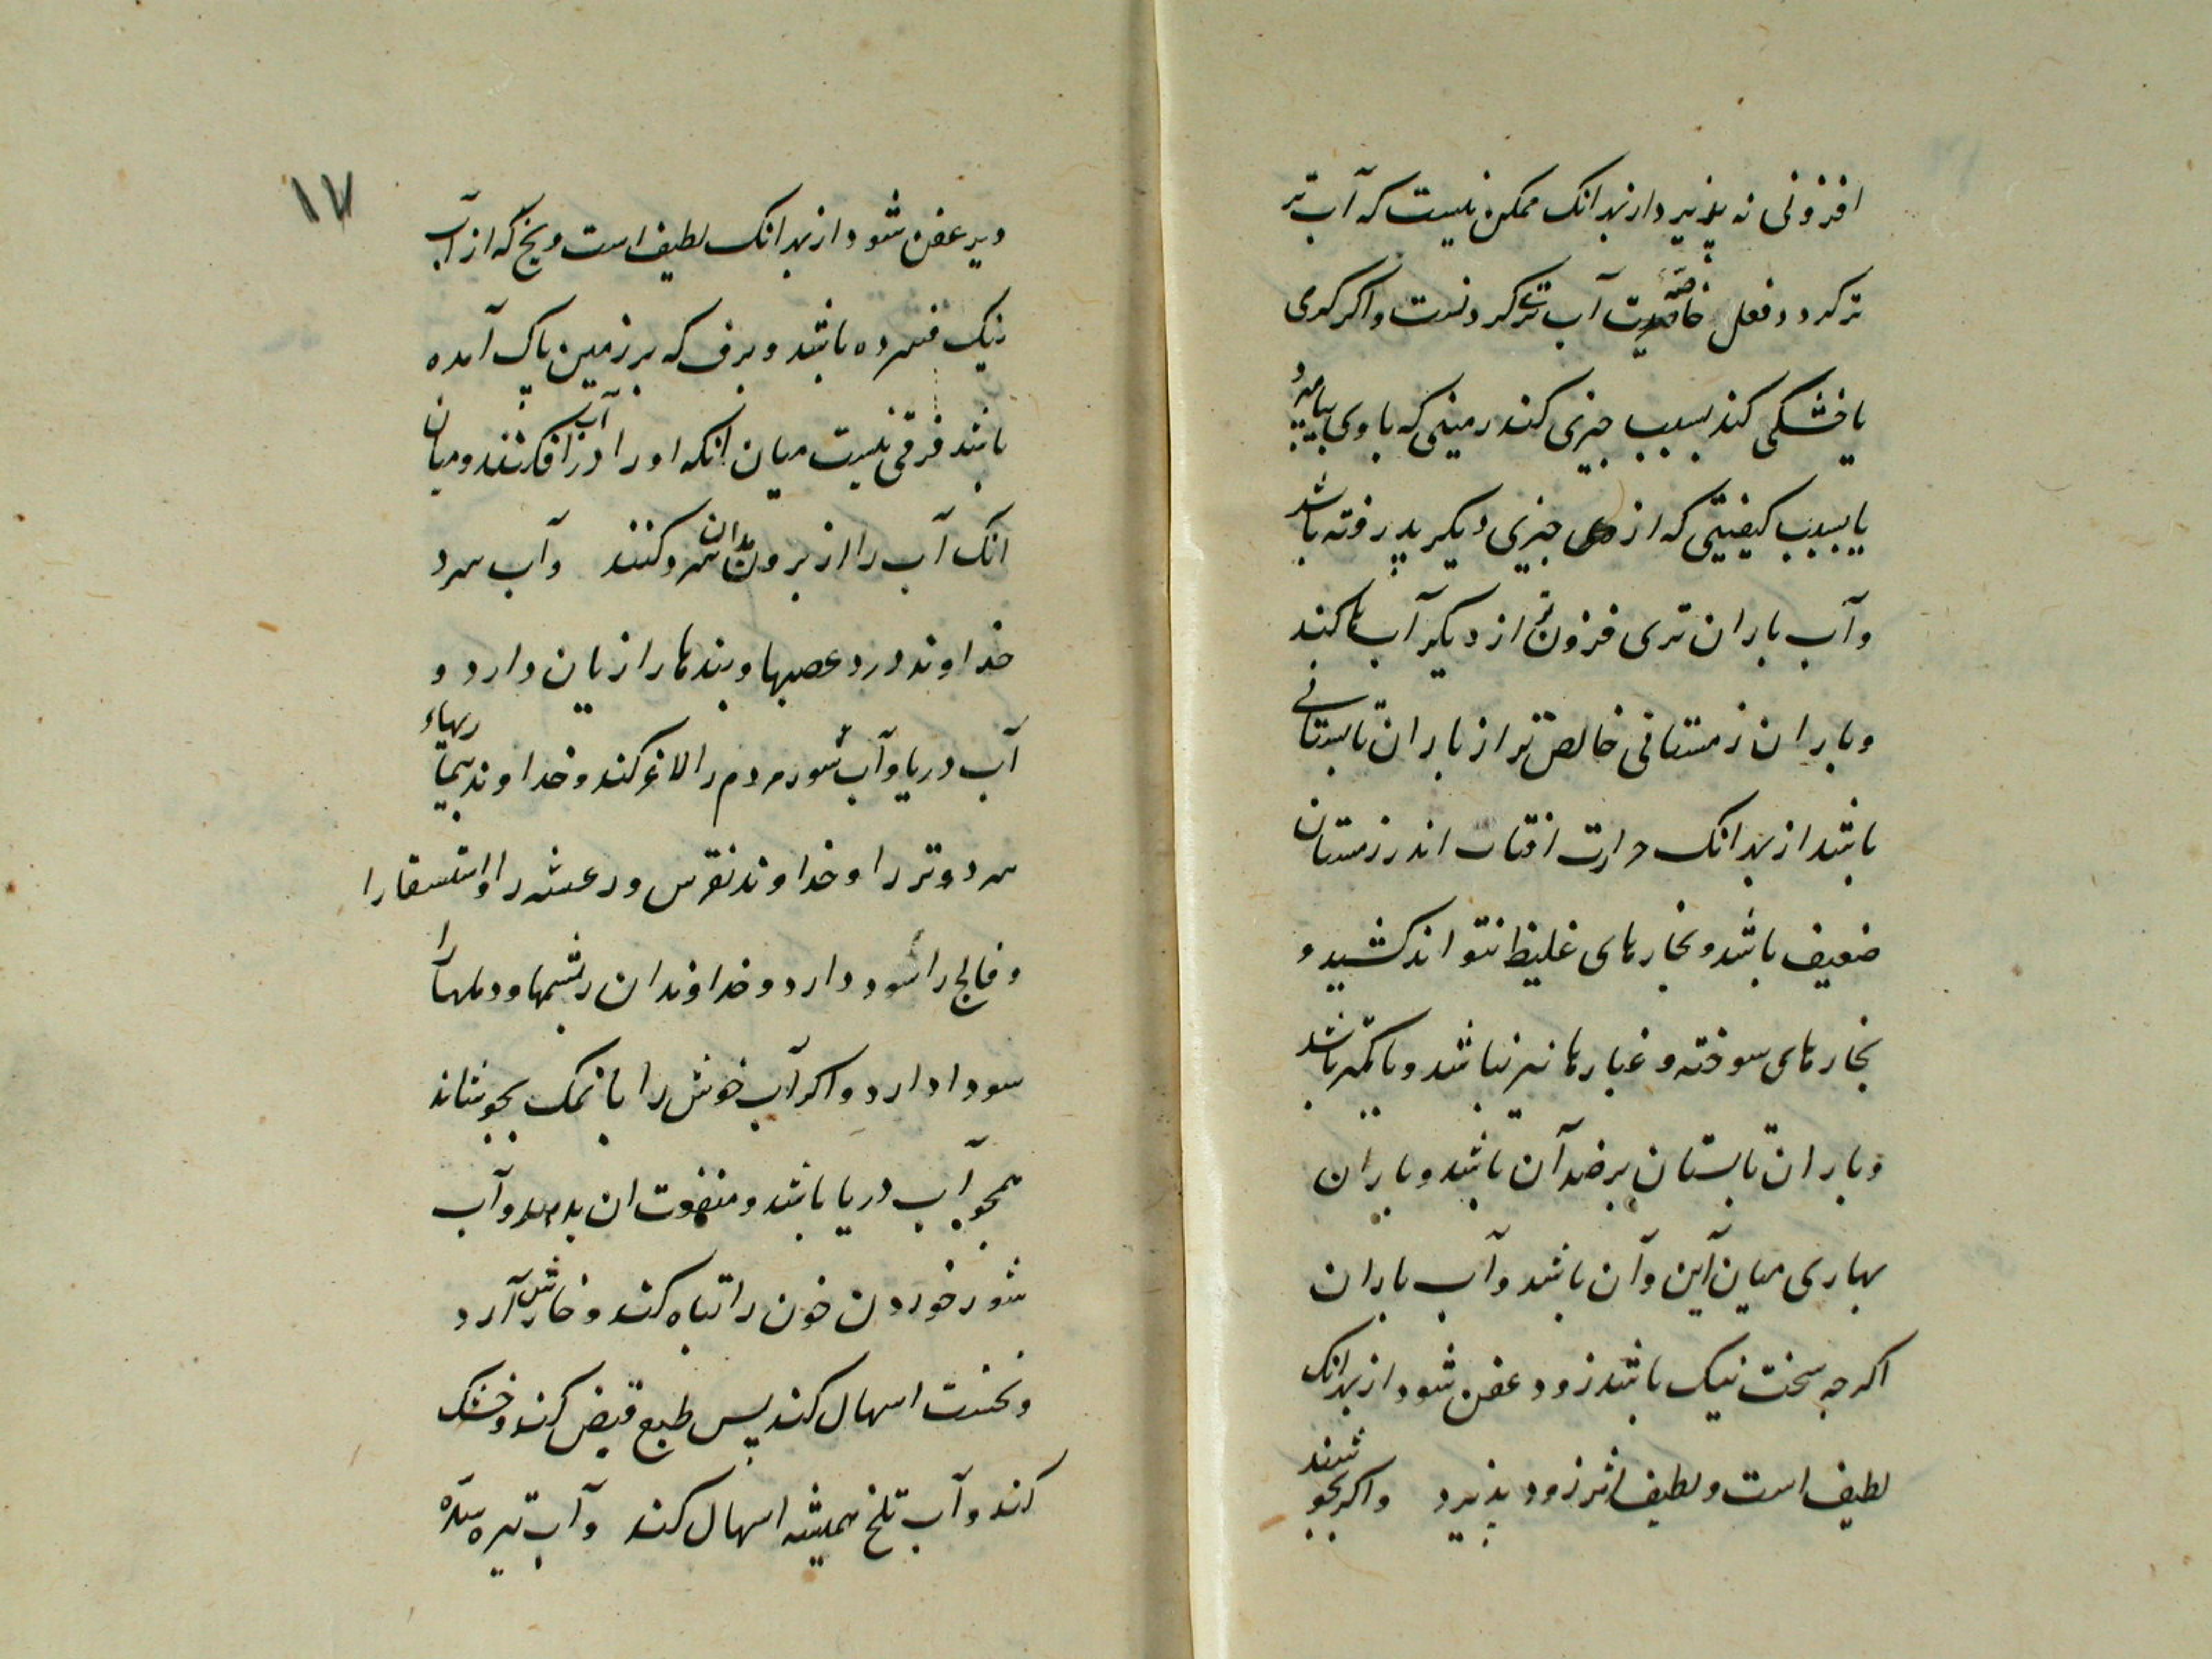 افزونی نه پذیرد از بهر انک ممکن نیست که آب تر
تر کردد و فعل خاصه آب تری کردنست و اکر کرمی
یا خشکی کند بسبب چیزی کند زمینی که با وی بیامیزد
یا بسبب کیفیتی که از چیزی دیکر پدرفته باشد
و آب باران تری فزون تر از دیکر آب ها کند
و باران زمستانی خالص تر از باران تابستانی
باشد از بهر انک حرارت افتاب اندر زمستان
ضعیف باشد و بخارهای غلیظ نتواند کشید و
بخارهای سوخته و غبارها نیز نباشد و یا کمتر باشد
و باران تابستان برضد آن باشد و باران
بهاری میان این و آن باشد و آب باران
اکرچه سخت نیک باشد زود عفن شود از بهر انک
لطیف است و لطیف اثر زود پذیرد و اکر بجوشند
۱۷
دیر عفن شود از بهر انک لطیف است و یخ که از آب
نیک فسرده باشد و برف که بر زمین پاک آمده
باشد فرقی نیست میان انکه او را در آب افکنند و میان
انک آب را از برون بدان سرد کنند و آب سرد
خداوند درد عصبها و بندها را زیان دارد و
آب دریا و آب شور مردم را لاغر کند و خداوند بیماریهاء
سرد و تر را و خداوند نقرس و رعشه را و استسقا را
و فالج را سود دارد و خداوندان ریشها و دملها را
سود دارد و اکر آب خوش را با نمک بجوشاند
همجو آب دریا باشد و منفعت ان بدهد و آب
شور خوردن خون را تباه کند و خارش آرد
و نخست اسهال کند پس طبع قبض کند و خشک
کند و آب تلخ همیشه اسهال کند و آب تیره سده